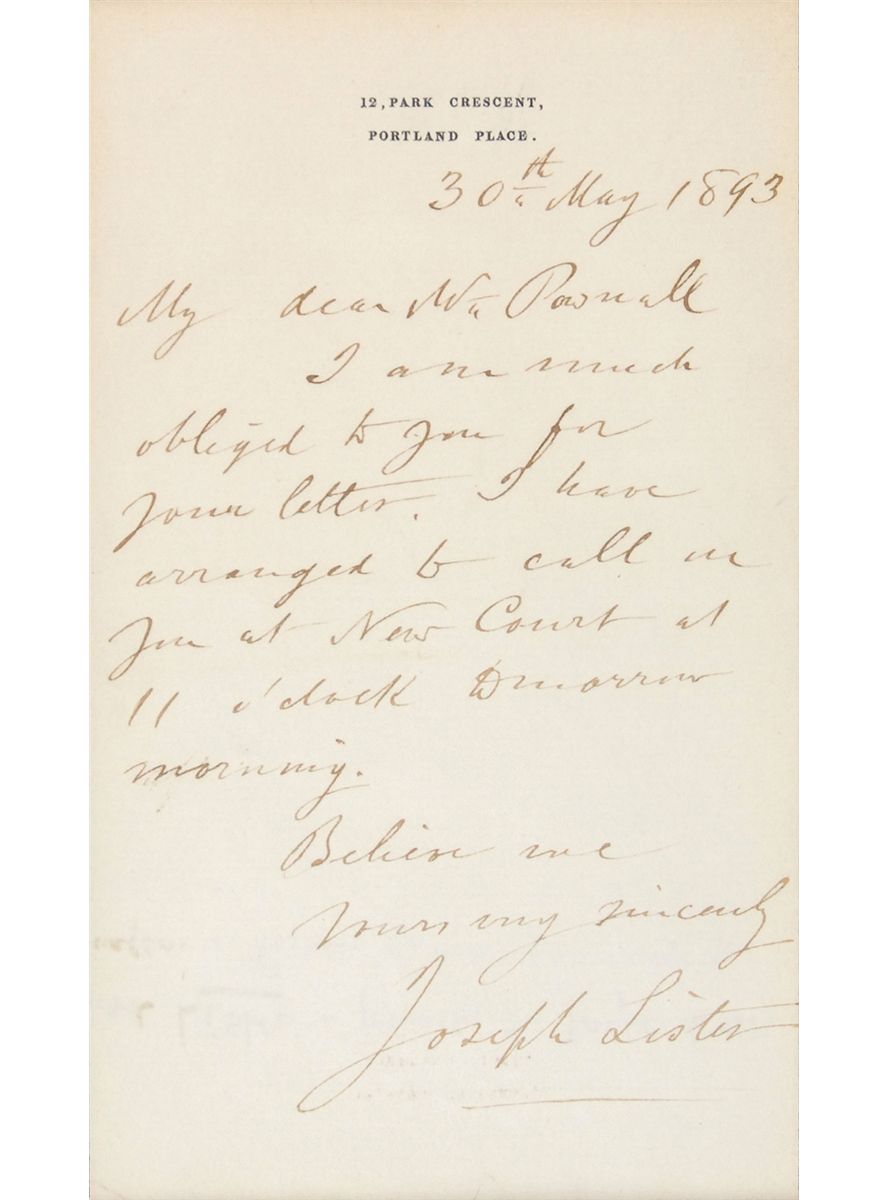 12, PARK CRESCENT,
PORTLAND PLACE.
30th May 1893
My dear Mr Pownall
I am much
obliged to you for
your letter. I have
arranged to call on
you at New Court at
11 o'clock tomorrow
morning.
Believe me
Yours very sincerely
Joseph Lister